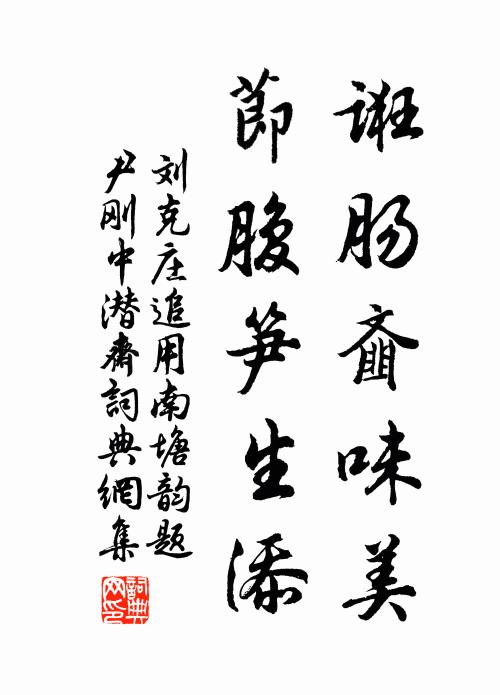 诳肠齑味美
莭腹笋生添
刘克庄追用南塘韵题
尹刚中潜齋詞典網集
詞典网印